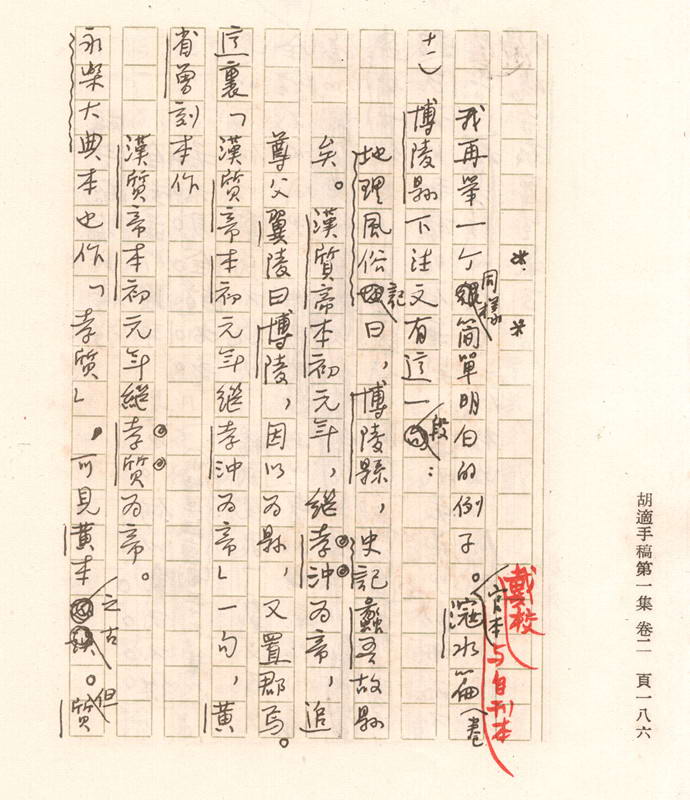 胡適手稿第一集 卷二 頁一八六
**
我再举一个同樣簡單明白的例子。戴校官本与自刊本滱水篇（卷
十一）博陵縣下注文有這一段：
地理風俗記曰，博陵縣，史記蠡吾故縣
矣。漢質帝本初元年，継孝沖为帝，追
尊父翼陵曰博陵，因以为縣，又置郡焉。
這裏「漢質帝本初元年継孝沖为帝」一句，黄
省曾刻本作
漢質帝本初元年継孝質为帝。
永樂大典本也作「孝質」，可見黄本之古。但質